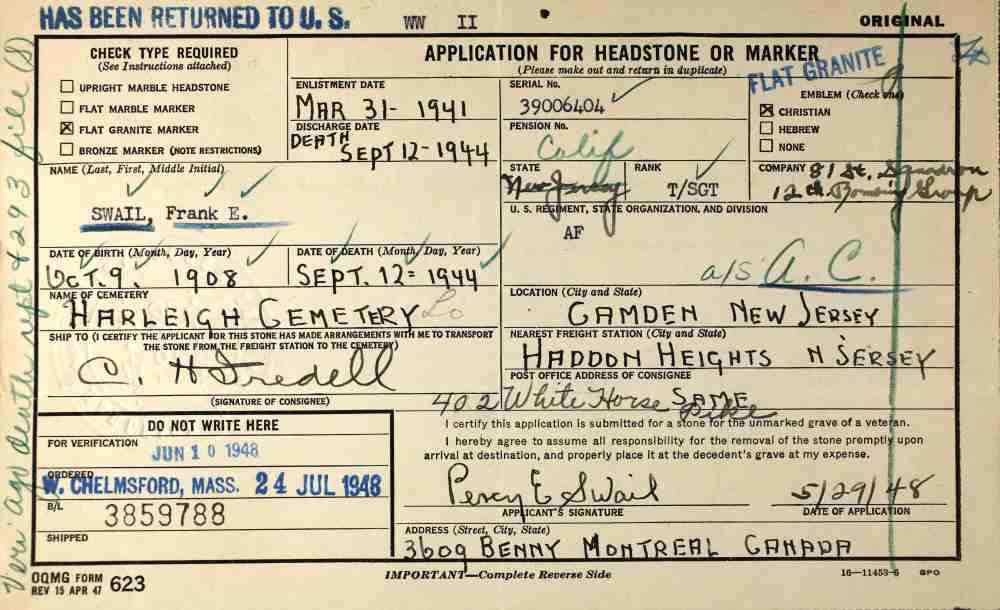 HAS BEEN RETURNED TO U. S. WW II ORIGINAL
CHECK TYPE REQUIRED
(See Instructions attached)
UPRIGHT MARBLE HEADSTONE
FLAT MARBLE MARKER
FLAT GRANITE MARKER
BRONZE MARKER (NOTE RESTRICTIONS)
APPLICATION FOR HEADSTONE OR MARKER
(Please make out and return in duplicate)
FLAT GRANITE
ENLISTMENT DATE
MAR 31- 1941
DISCHARGE DATE
DEATH
SEPT 12-1944
SERIAL No.
39006404
PENSION No.
Calif
EMBLEM (Check one)
CHRISTIAN
HEBREW
NONE
NAME (Last, First, Middle Initial)
SWAIL, Frank E.
STATE
New Jersey
RANK
T/SGT
COMPANY 81 St. Squadron
12th Bombing Group
U. S. REGIMENT, STATE ORGANIZATION, AND DIVISION
AF
a/s A. C.
DATE OF BIRTH (Month, Day, Year)
OCT. 9. 1908
DATE OF DEATH (Month, Day, Year)
SEPT. 12= 1944
NAME OF CEMETERY
HARLEIGH CEMETERY Lo
LOCATION (City and State)
CAMDEN NEW JERSEY
SHIP TO (I CERTIFY THE APPLICANT FOR THIS STONE HAS MADE ARRANGEMENTS WITH ME TO TRANSPORT
THE STONE FROM THE FREIGHT STATION TO THE CEMETERY)
C. H Tredell
(SIGNATURE OF CONSIGNEE)
NEAREST FREIGHT STATION (City and State)
HADDON HEIGHTS N JERSEY
POST OFFICE ADDRESS OF CONSIGNEE
402 White Horse Pike SAME
DO NOT WRITE HERE
FOR VERIFICATION
JUN 10 1948
ORDERED
W. CHELMSFORD, MASS. 24 JUL 1948
B/L
3859788
SHIPPED
I certify this application is submitted for a stone for the unmarked grave of a veteran.
I hereby agree to assume all responsibility for the removal of the stone promptly upon
arrival at destination, and properly place it at the decedent's grave at my expense.
Percy E Swail 5/29/48
APPLICANT'S SIGNATURE DATE OF APPLICATION
ADDRESS (Street, City, State)
3609 BENNY MONTREAL CANADA
OQMG FORM
REV 15 APR 47 623
IMPORTANT—Complete Reverse Side
16—11453-5 GPO
Veri ago death rpt #293 file (S)